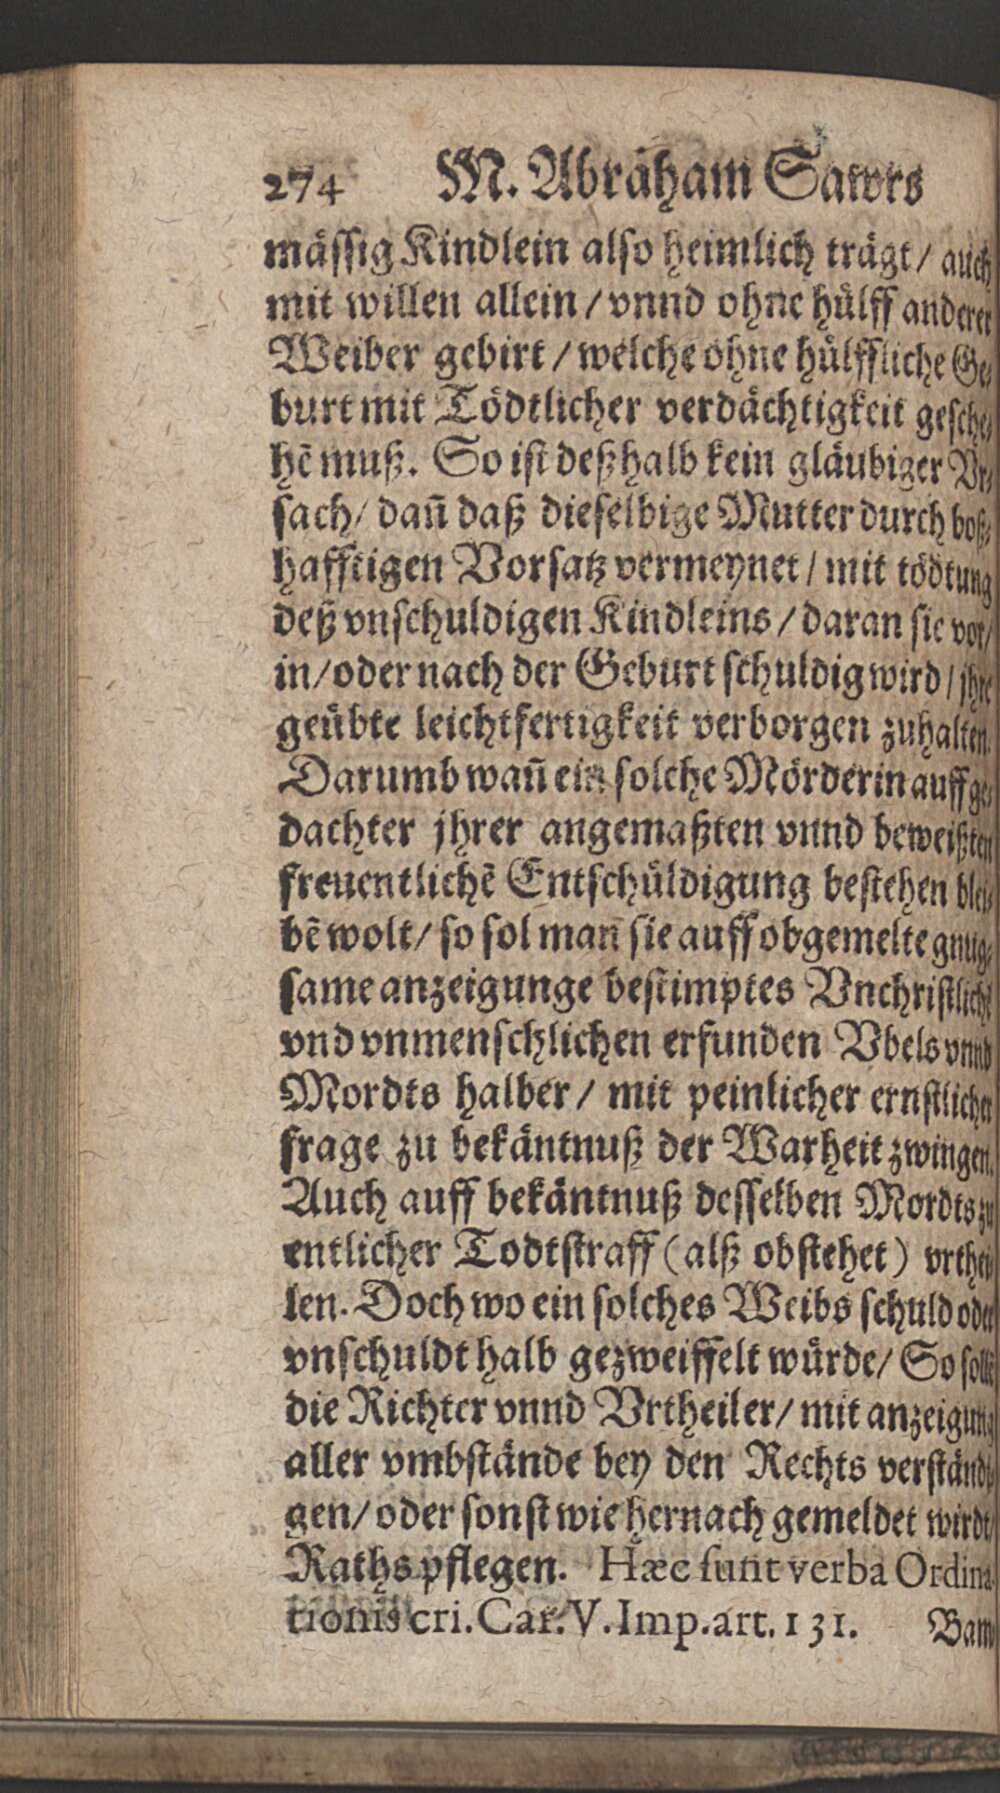 274 M. Abraham Sawrs
mässig Kindlein also heimlich trägt/ auch
mit willen allein/ vnnd ohne hülff anderer
Weiber gebirt/ welche ohne hülffliche Ge⸗
burt mit Tödtlicher verdächtigkeit gesche⸗
hẽ muß. So ist deßhalb kein gläubiger Vr⸗
sach/ dañ daß dieselbige Mutter durch boß⸗
hafftigen Vorsatz vermeynet/ mit tödtung
deß vnschuldigen Kindleins/ daran sie vor/
in/ oder nach der Geburt schuldig wird/ jhre
geübte leichtfertigkeit verborgen zuhalten.
Darumb wañ ein solche Mörderin auff ge⸗
dachter jhrer angemaßten vnnd beweißten
freuentlichẽ Entschüldigung bestehen blei⸗
bẽ wolt/ so sol man sie auff obgemelte gnug⸗
same anzeigunge bestimptes Vnchristlichẽ
vnd vnmenschlichen erfunden Vbels vnnd
Mordts halber/ mit peinlicher ernstlicher
frage zu bekäntnuß der Warheit zwingen.
Auch auff bekäntnuß desselben Mordts zu
entlicher Todtstraff (alß obstehet) vrthei⸗
len. Doch wo ein solches Weibs schuld oder
vnschuldt halb gezweiffelt würde/ So solle
die Richter vnnd Vrtheiler/ mit anzeigung
aller vmbstände bey den Rechts verständi⸗
gen/ oder sonst wie hernach gemeldet wirdt/
Raths pflegen. Hæc sunt verba Ordina-
tionis cri. Car. V. Imp. art. 131. Bam⸗